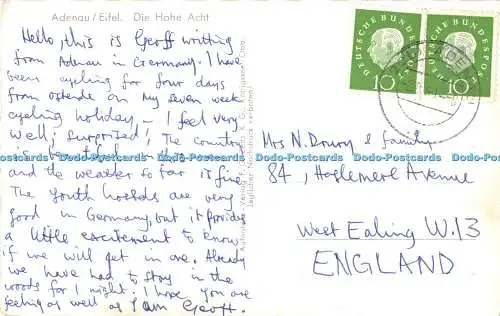 Adenau / Eifel. Die Hohe Acht
Hello, this is Geoff writing
from Adenau in Germany. I have
been cycling for four days
from Ostende on my seven week
cycling holiday — I feel very
well, surprised! The country
is
and the weather so far is fine
The Youth hostels are very
good in Germany, but it provides
a little excitement to know
if we will get in one. Already
we have had to stay in the
woods for 1 night. I hope you are
feeling as well as I am Geoff.
DEUTSCHE BUNDESPOST
10
DEUTSCHE BUNDESPOST
10
Mrs N. Drury & family
84, Haslemere Avenue
West Ealing W.13
ENGLAND
Dodo-Postcards Dodo-Postcards Dodo-Postcards Dodo-Postcards Dodo-Postcards